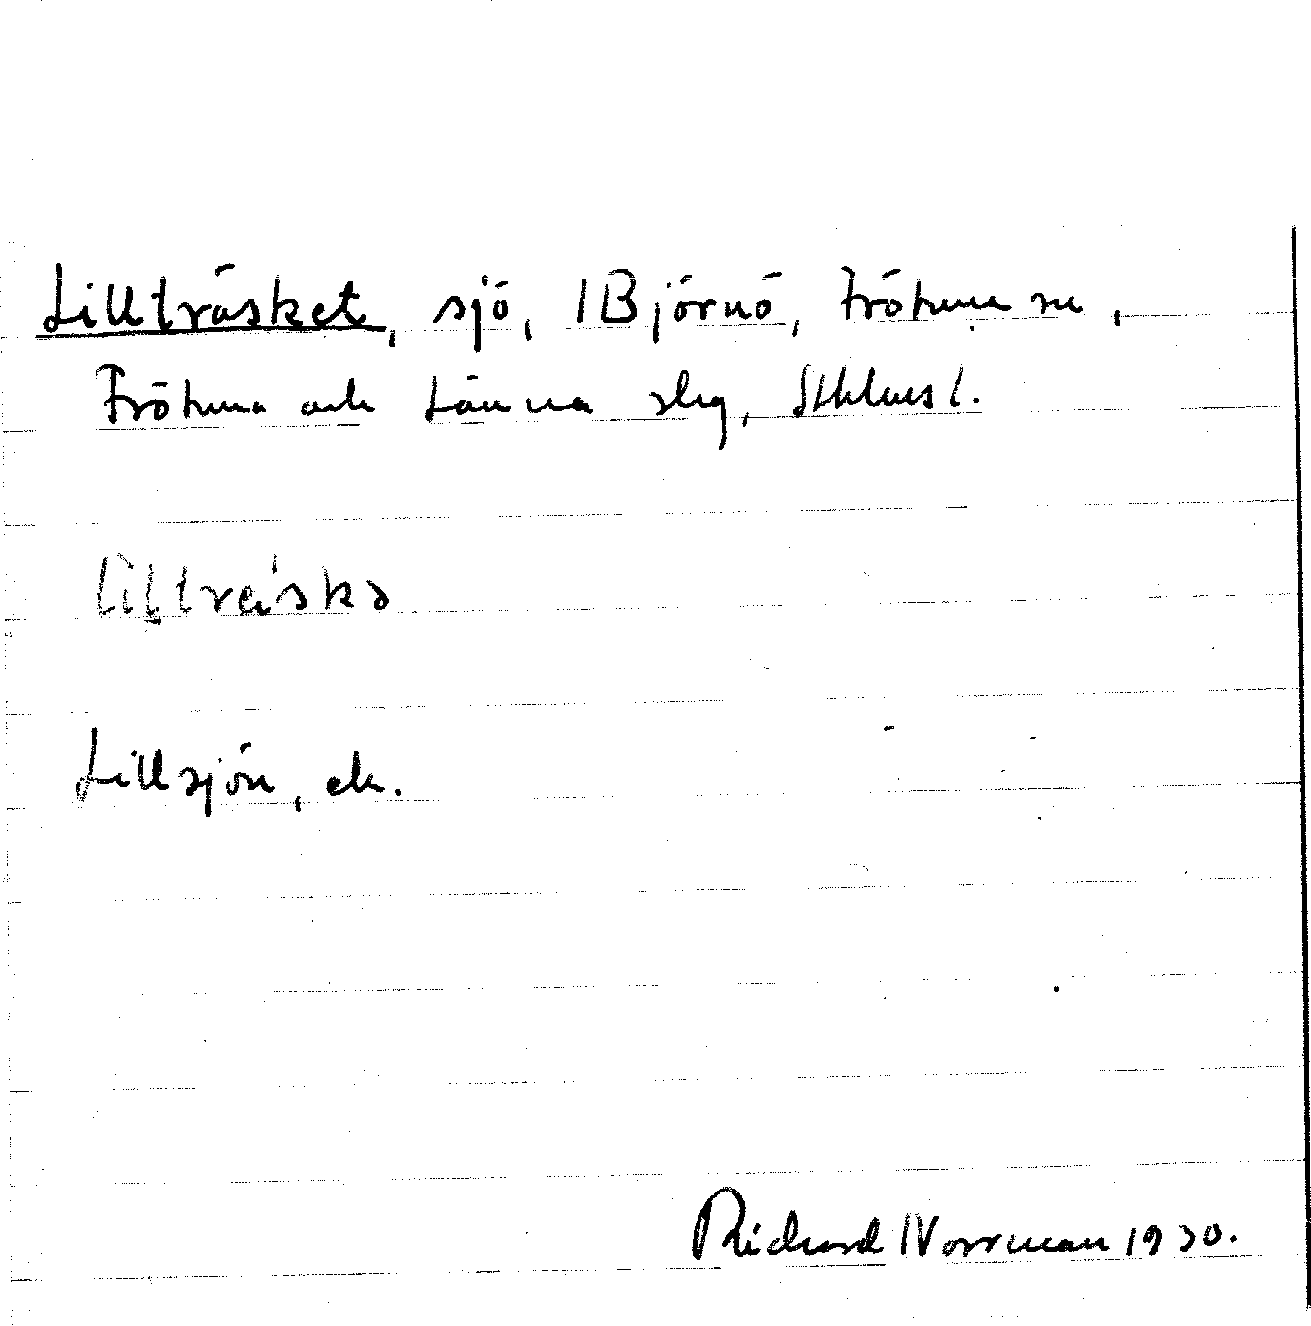 Lillträsket, sjö, 1 Björnö, Frötuna sn,
Frötuna och Länna slg, Sthlms l.
Lillträskə
Lillsjön, ek.
Richard Norrman 1930.